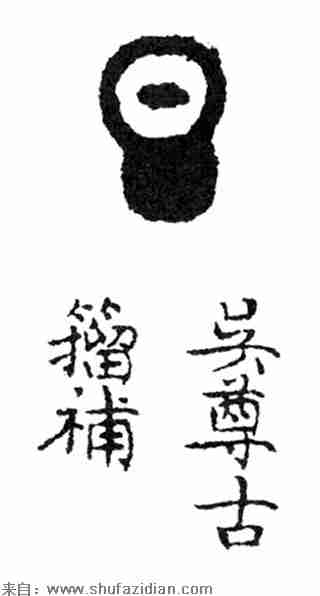 旦
吳尊古
籀補
来自：www.shufazidian.com